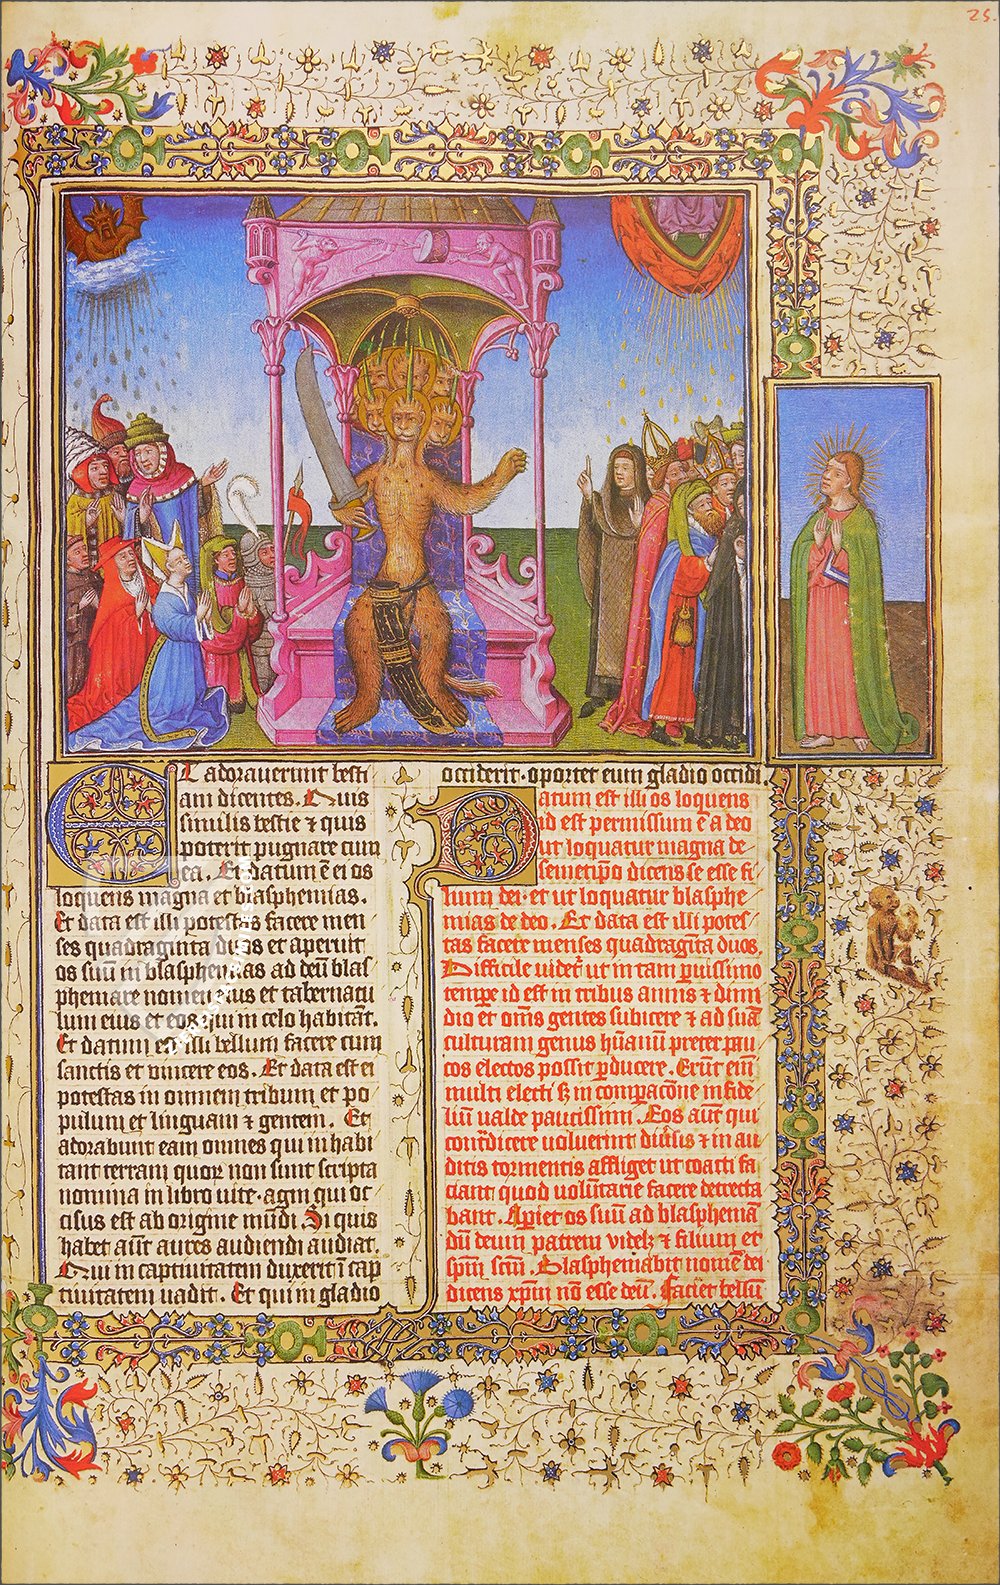 25.
Et adoraverunt besti
am dicentes. Quis
similis bestie ⁊ quis
poterit pugnare cum
ea. Et datum ē ei os
loquens magna et blasphemias.
Et data est illi potestas facere men
ses quadraginta duos et aperuit
os suū in blasphemias ad deū blas
phemare nomen eius et tabernacu
lum eius et eos qui in celo habitāt.
Et datum est illi bellum facere cum
sanctis et vincere eos. Et data est ei
potestas in omnem tribum et po
pulum et linguam ⁊ gentem. Et
adorabunt eam omnes qui inhabi
tant terram quor non sunt scripta
nomina in libro vite. agni qui oc
cisus est ab origine mūdi. Si quis
habet aūt aures audiendi audiat.
Qui in captivitatem duxerit ī cap
tivitatem vadit. Et qui in gladio
occiderit. oportet eum gladio occidi.
Datum est illi os loquens
id est permissum ē a deo
ut loquatur magna de
semetip̄o dicens se esse fi
lium dei. et ut loquatur blasphe
mias de deo. Et data est illi potes
tas facere menses quadragīta duos.
Difficile videt᷑ ut in tam p̄vissimo
tempore id est in tribus annis ⁊ dimi
dio et om̄s gentes subicere ⁊ ad suā
culturam genus hūanū preter pau
cos electos possit p̱ducere. Erūt eī
multi electi sꝫ in compac̄one infide
liū valde paucissimi. Eos aūt qui
cont̄dicere voluerint div̄sis ⁊ in au
ditis tormentis affliget ut coacti fa
ciant quod volūtarie facere detrecta
bant. Ap̱iet os suū ad blasphemiā
dū deum patrem videlꝫ ⁊ filium et
sp̄m sc̄m. Blasphemabit nomē dei
dicens xp̄m nō esse deū. Faciet bellū